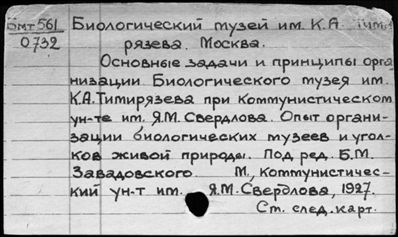 Бмт 561 Биологический музей им. К.А. Тими-
0732 рязева. Москва.
Основные задачи и принципы орга-
низации Биологического музея им.
К.А. Тимирязева при Коммунистическом
ун-те им. Я.М. Свердлова. Опыт органи-
зации биологических музеев и угол-
ков живой природы. Под ред. Б.М.
Завадовского М., Коммунистичес-
кий ун-т им. Я.М. Свердлова, 1927.
См. след. карт.